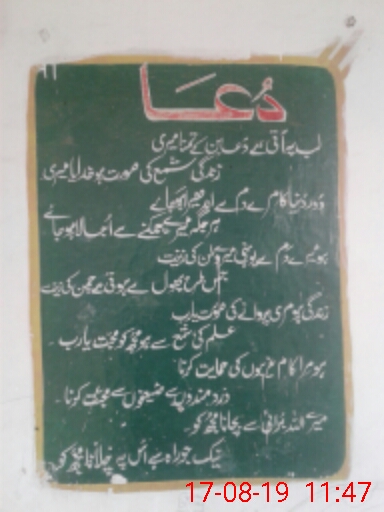 دُعا
لب پہ آتی ہے دُعا بن کے تمنا میری
زندگی شمع کی صورت ہو خدایا میری
دُور دُنیا کا مرے دم سے اندھیرا ہو جائے
ہر جگہ میرے چمکنے سے اُجالا ہو جائے
ہو میرے دَم سے یونہی میرے وطن کی زینت
جس طرح پھول سے ہوتی ہے چمن کی زینت
زندگی ہو مری پروانے کی صورت یارب
علم کی شمع سے ہو مجھ کو محبت یارب
ہو مرا کام غریبوں کی حمایت کرنا
درد مندوں سے ضعیفوں سے محبت کرنا
میرے اللہ بُرائی سے بچانا مجھ کو
نیک جو راہ ہے اُس پہ چلانا مجھ کو
17-08-19 11:47